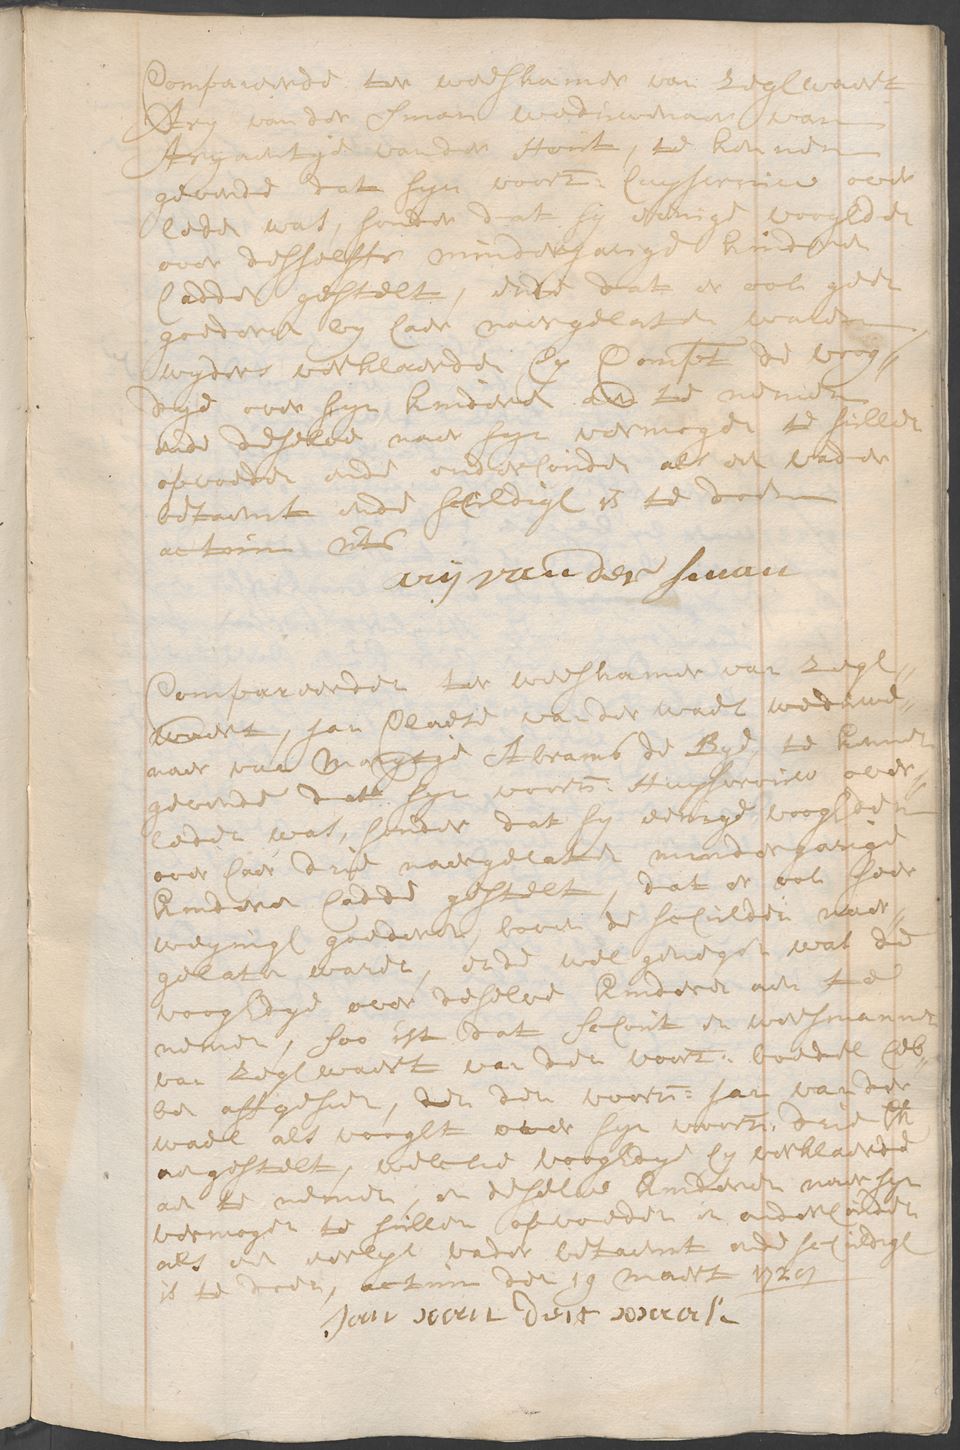 Compareerde ter weeskamer van Zeglwaert
Ary van der Sman weduwenaer van
Aryaentje vander Hout, te kennen
gevende dat syn voorn: huysvrouw over
leden was, sonder dat sy eenige vooghden
over desselfs minderjarige kinderen
hadde gestelt, ende dat er ook geen
goederen by haer naergelaten waren
wyders verklaerden hy Compt de voog"
dye over syn kinderen aen te nemen
ende deselve naer syn vermogen te sullen
opvoeden ende onderhouden als een vader
betaemt ende schuldigh is te doen
actum uts
arij van der sman
Compareerden ter weeskamer van Zegl"
waert, Jan Claesse vander Wael weduwe"
naer van Marytje Abrams de Bye, te kennen
gevende dat syn voorn: Huysvrouw over"
leden was, sonder dat sy eenige vooghden
over haer drie naergelaten minderjarige
kinderen hadde gestelt, dat er ook seer
weynigh goederen, boven de schulden naer"
gelaten waren, ende wel genegen was de
vooghdye over deselve kinderen aen te
nemen, soo ist dat schout en weesmannen
van Zeglwaert van den voorn: boedel heb"
ben affgesien, en den voorn: Jan vander
Wael als vooght over syn voorn: drie
aengestelt, welcke vooghdye hy verklaerde
aen te nemen, en deselve kinderen naer syn
vermogen te sullen opvoeden en onderhouden
als een eerlyk vader betaemt ende schuldigh
is te doen, actum den 19 maert 1729
Jan van der waal